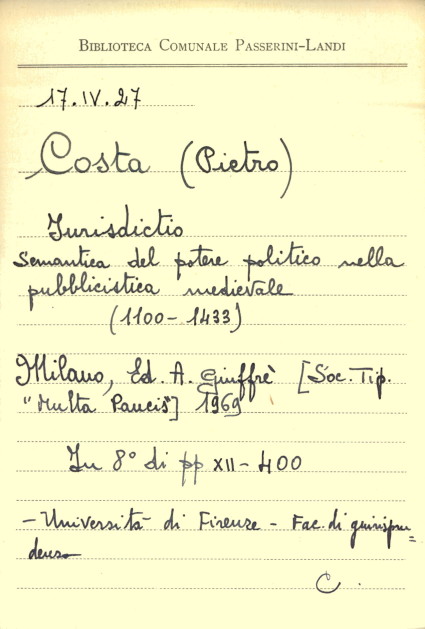 BIBLIOTECA COMUNALE PASSERINI-LANDI
17.IV.27
Costa (Pietro)
Iurisdictio
Semantica del potere politico nella
pubblicistica medievale
(1100-1433)
Milano, Ed. A. Giuffrè [Soc. Tip.
"Multa Paucis"] 1969
In 8° di pp XII-400
- Università di Firenze - Fac. di giurispru=
denza
C.